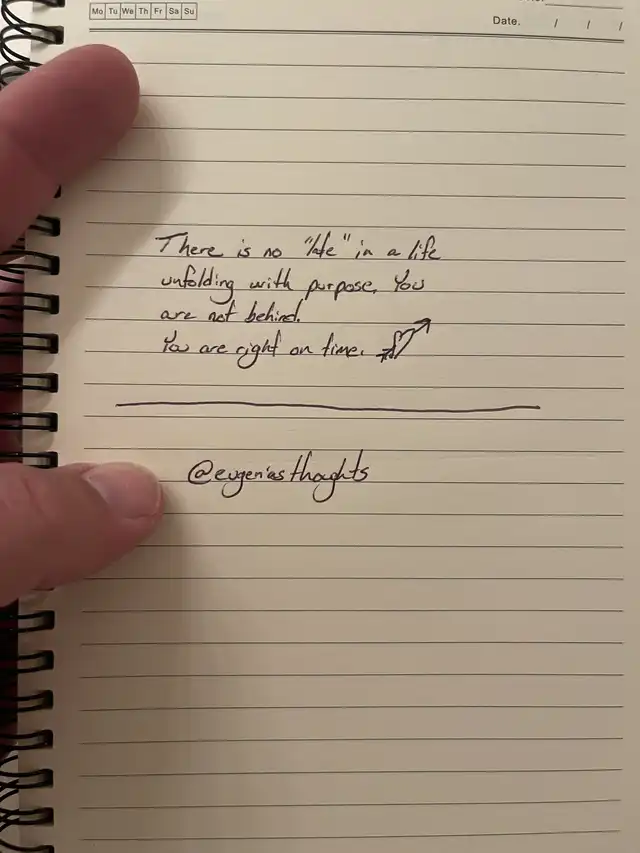 Mo Tu We Th Fr Sa Su
Date. / / /
There is no "late" in a life
unfolding with purpose. You
are not behind.
You are right on time.
@eugeniasthoughts